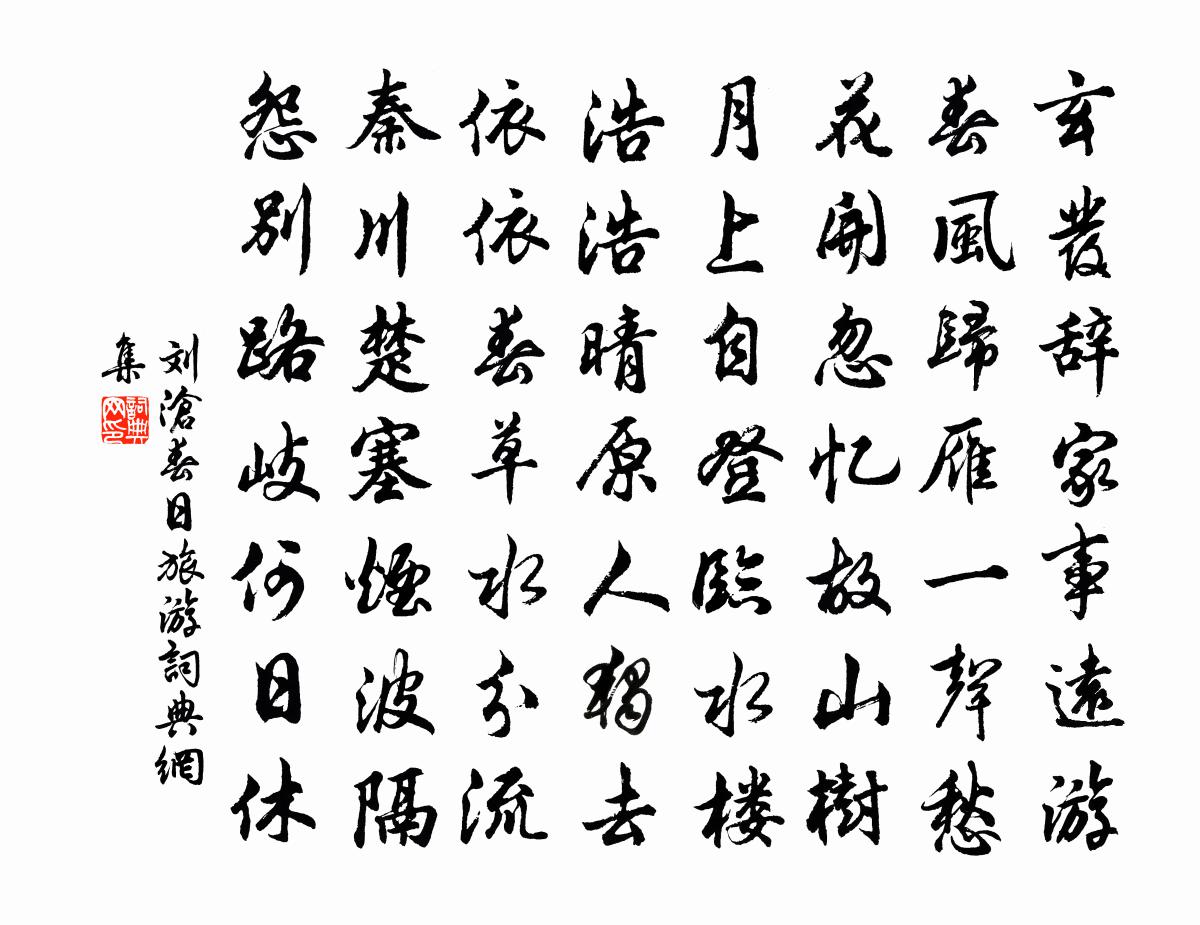 玄發辞家事遠游
春風歸雁一聲愁
花開忽忆故山樹
月上自登臨水楼
浩浩晴原人獨去
依依春草水分流
秦川楚塞煙波隔
怨別路岐何日休
刘滄春日旅游詞典網
集
詞典网印